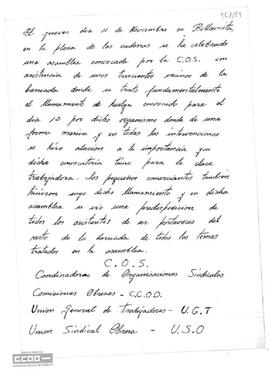 El jueves día 11 de Noviembre en Bellavista,
en la plaza de las cadenas se ha celebrado
una asamblea convocada por la C.O.S. con
asistencia de unos trescientos vecinos de la
barriada donde se trató fundamentalmente
el llamamiento de huelga convocado para el
día 12 por dicho organismo donde de una
forma masiva y en todas las intervenciones
se hizo alusión a la importancia que
dicha convocatoria tiene para la clase
trabajadora. Los pequeños comerciantes tambien
hicieron suyo dicho llamamiento y en dicha
asamblea se vió una predisposicion de
todos los asistentes de ser portavoces del
resto de la barriada de todos los temas
tratados en la asamblea.
C. O. S.
Coordinadora de Organizaciones Sindicales
Comisiones Obreras - CC.OO.
Union General de Trabajadores - U.G.T
Union Sindical Obrera - U.S.O
CCOO